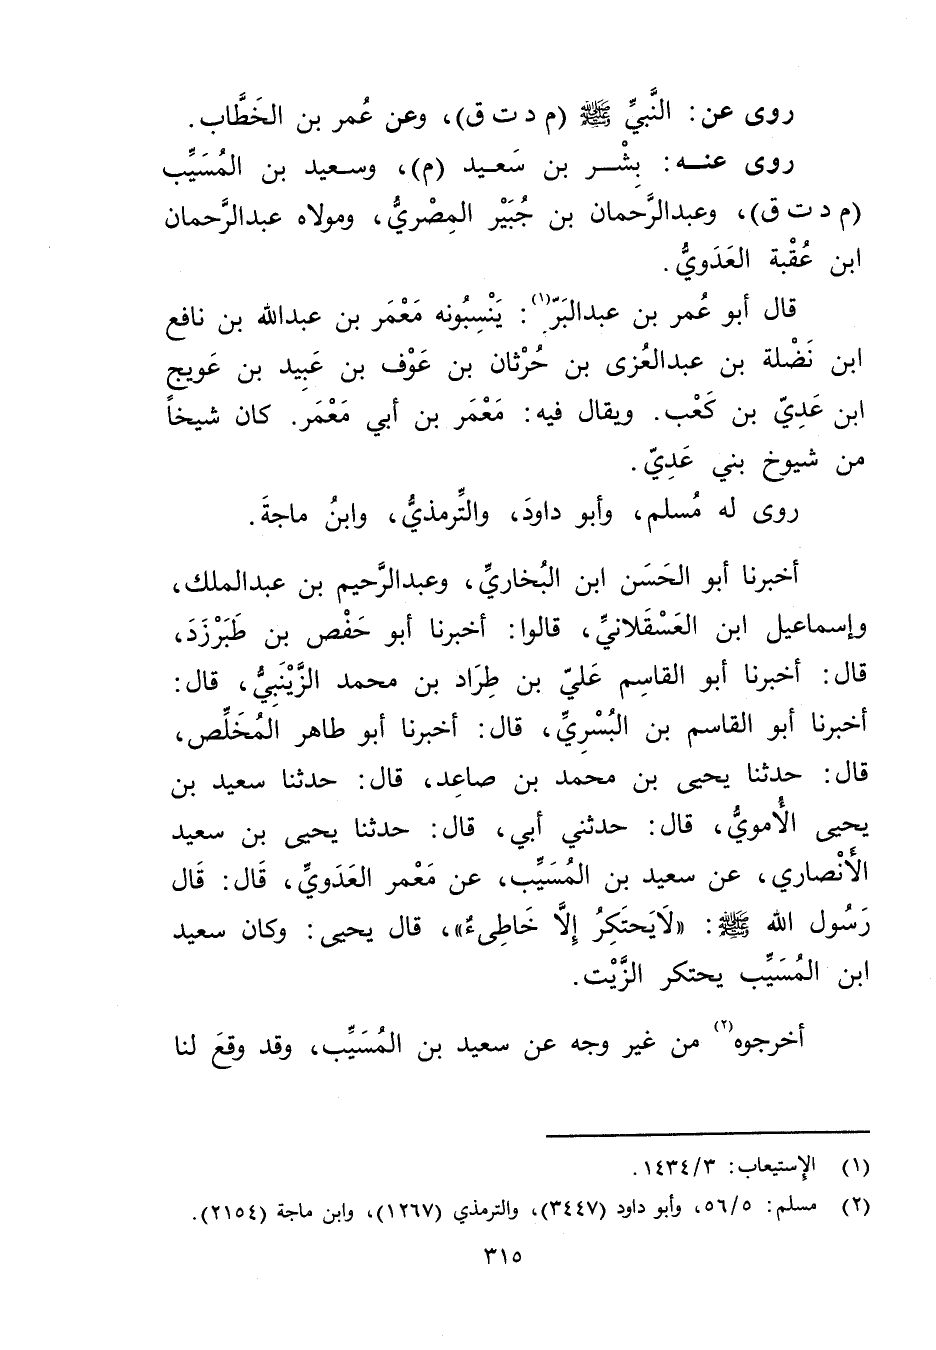 روى عن: النَّبيِّ ﷺ (م د ت ق)، وعن عُمر بن الخَطَّاب.
روى عنـه: بِشْـر بن سَعـيد (م)، وسـعيد بن المُسَيِّب
(م د ت ق)، وعبدالرَّحمان بن جُبَيْر المِصْريُّ، ومولاه عبدالرَّحمان
ابن عُقْبة العَدَويُّ.
قال أبو عُمر بن عبدالبَرِّ(١): يَنْسِبُونه مَعْمَر بن عبدالله بن نافع
ابن نَضْلة بن عبدالعُزى بن حُرْثان بن عَوْف بن عَبِيد بن عَويج
ابن عَدِيّ بن كَعْب. ويقال فيه: مَعْمَر بن أبي مَعْمَر. كان شيخاً
من شيوخ بني عَدِيّ.
روى له مُسلم، وأبو داودَ، والتِّرمذيُّ، وابنُ ماجةَ.
أخبرنا أبو الحَسَن ابن البُخاريِّ، وعبدالرَّحيم بن عبدالملك،
وإسماعيل ابن العَسْقَلانيِّ، قالوا: أخبرنا أبو حَفْص بن طَبَرْزَدَ،
قال: أخبرنا أبو القاسِم عَليّ بن طِرَاد بن محمد الزَّيْنَبِيُّ، قال:
أخبرنا أبو القاسم بن البُسْرِيِّ، قال: أخبرنا أبو طاهر المُخَلِّص،
قال: حدثنا يحيى بن محمد بن صاعِد، قال: حدثنا سعيد بن
يحيى الأُمويُّ، قال: حدثني أبي، قال: حدثنا يحيى بن سعيد
الأَنْصاري، عن سعيد بن المُسَيِّب، عن مَعْمر العَدَويِّ، قَال: قَال
رَسُول الله ﷺ: «لَايَحتَكِرُ إِلَّا خَاطِىءٌ»، قال يحيى: وكان سعيد
ابن المُسَيِّب يحتكر الزَّيْت.
أخرجوه(٢) من غير وجه عن سعيد بن المُسَيِّب، وقد وقعَ لنا
(١) الإستيعاب: ١٤٣٤/٣.
(٢) مسلم: ٥٦/٥، وأبو داود (٣٤٤٧)، والترمذي (١٢٦٧)، وابن ماجة (٢١٥٤).
٣١٥